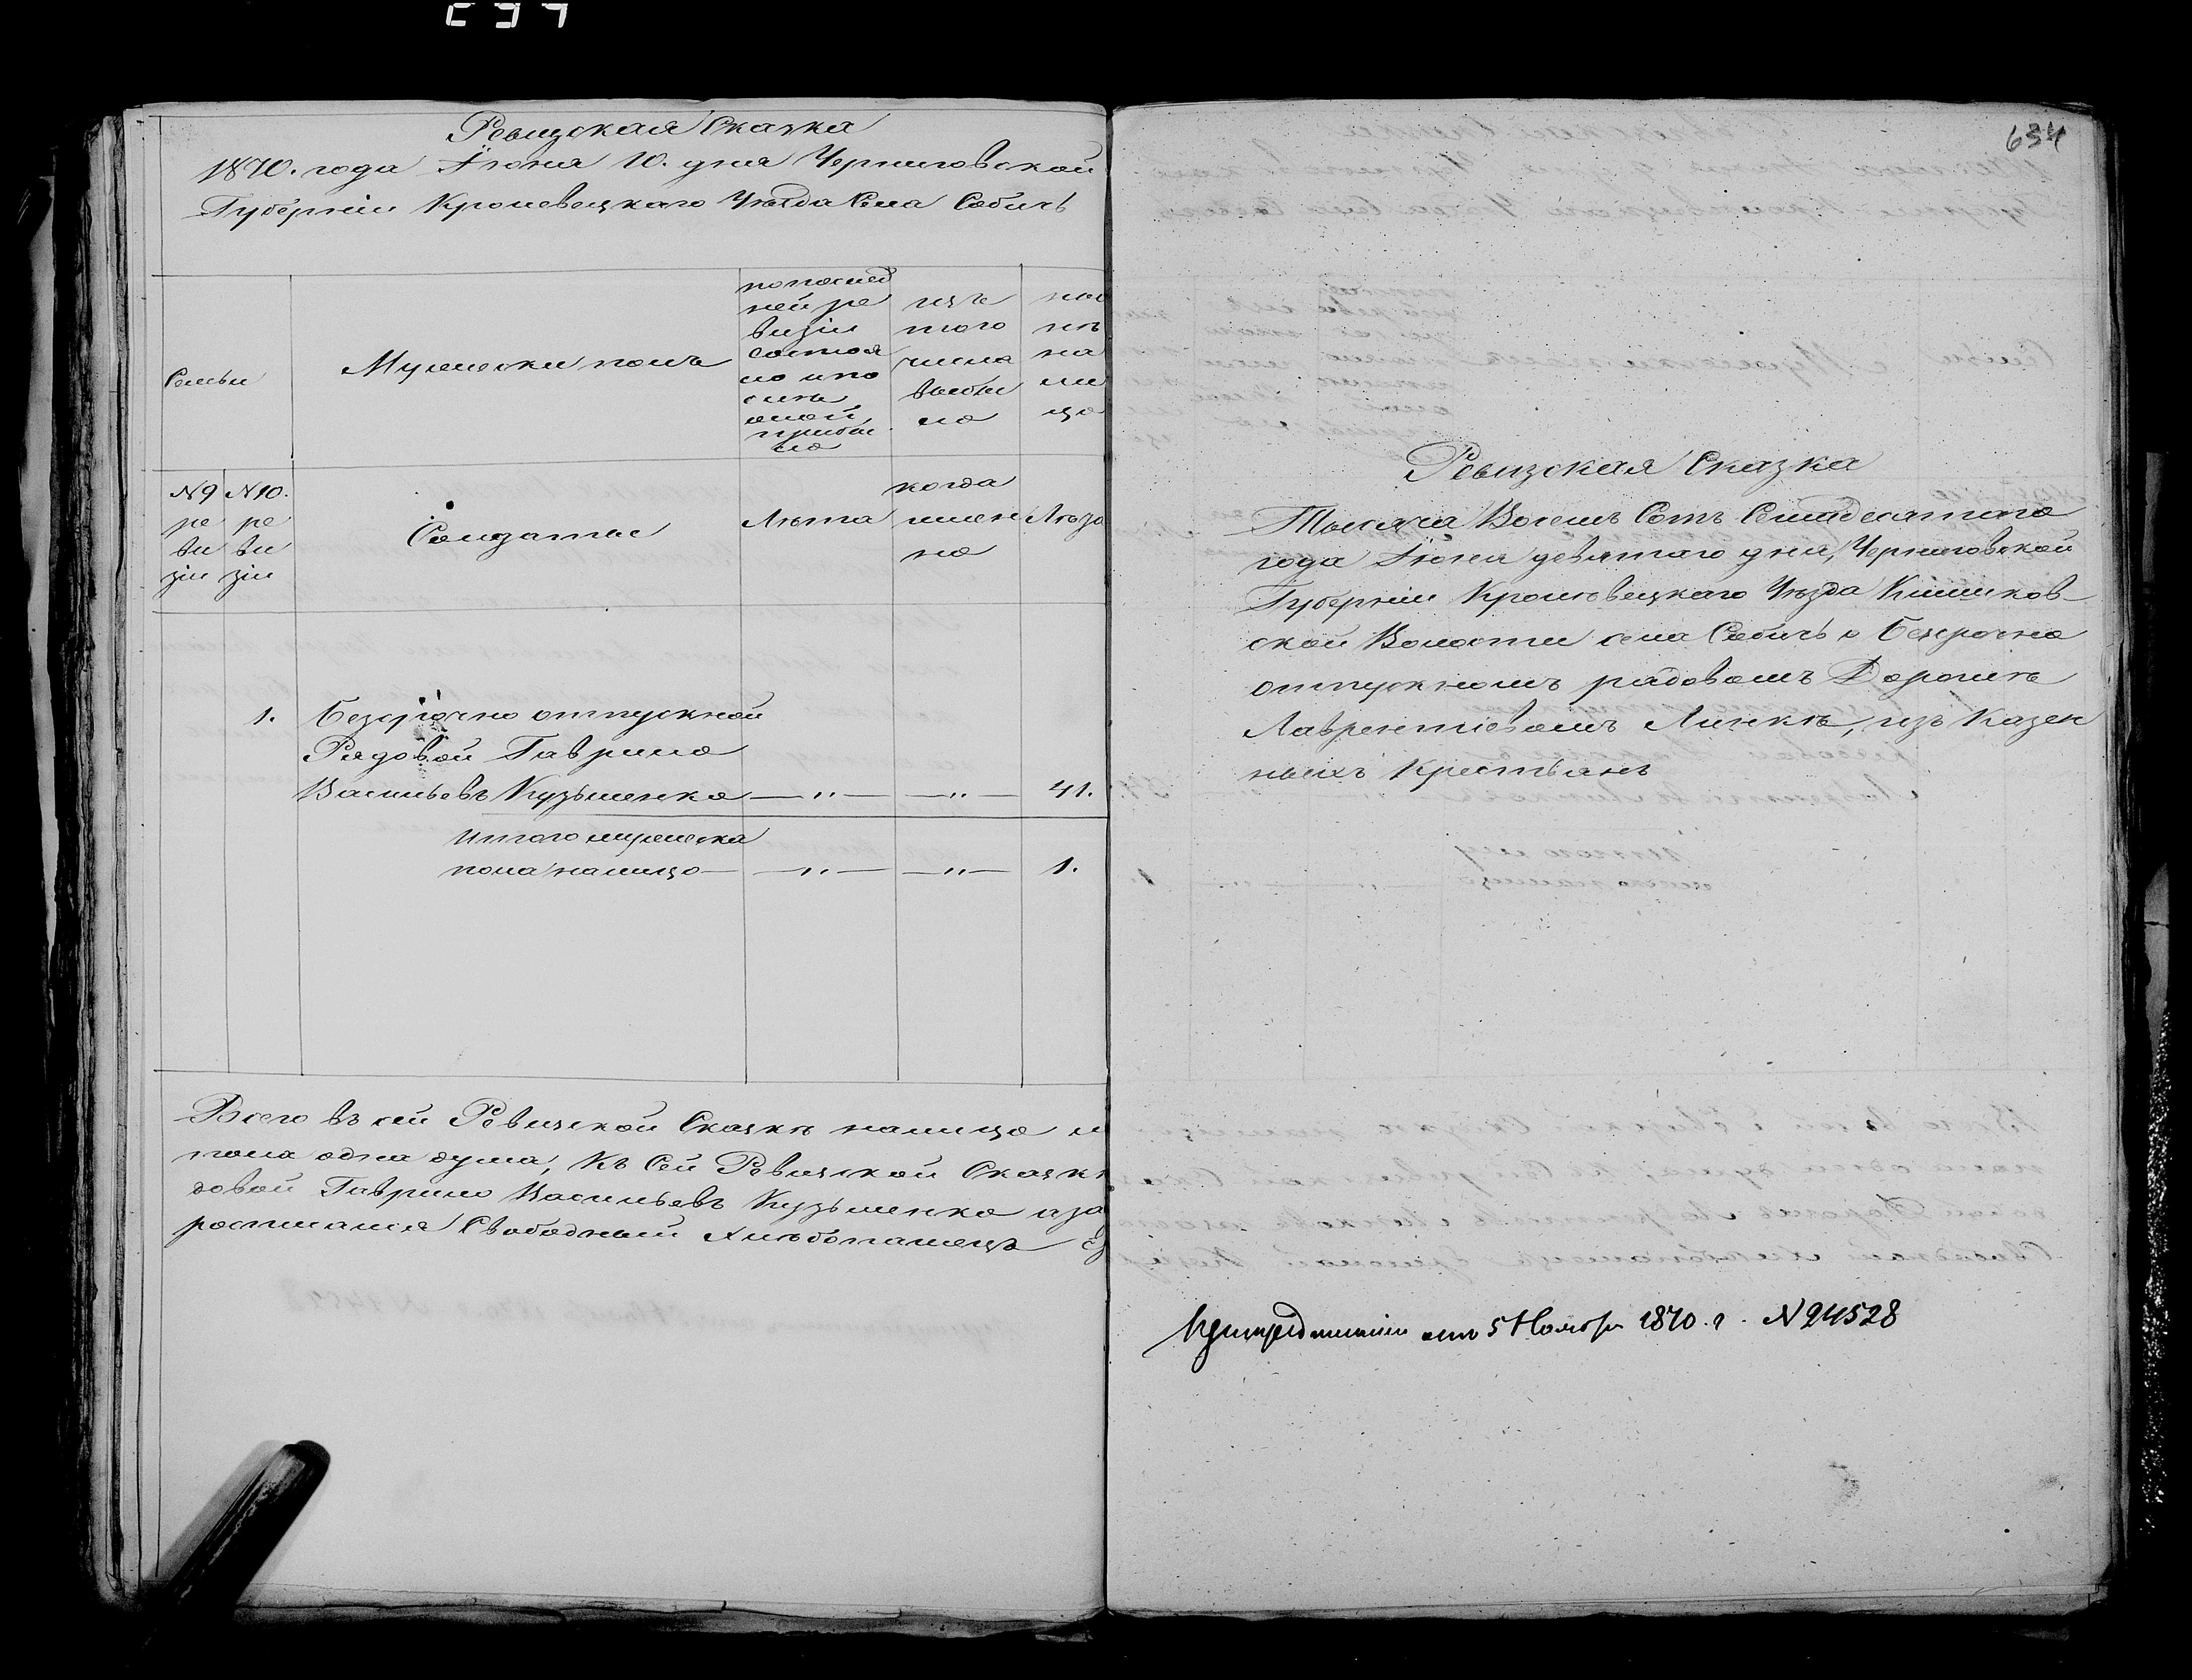 Ревизская Сказка
1870. года Іюня 10. дня Черниговской
Губерніи Кролевецкаго Уѣзда Села Собичь
Семьи
Мужески полъ
по послед
ней ре
визіи
состоя
ло и по
слѣ
оной
прибы
ло
изъ
того
числа
выбы
ло
ны
нѣ
на
ли
цо
№ 9 № 10.
ре ре
ви ви
зіи зіи
Солдаты
Лѣта
когда
имен
но
Лѣта
1. Безсрочно отпускной
Рядовой Гаврило
Васильевъ Кузьменко — „ — — „ — 41.
Итого мужеска
пола налицо — — „ — — „ — 1.
Всего въ сей Ревизской Сказкѣ налицо м
пола одна душа, Къ Сей Ревизской Сказкѣ
довой Гаврило Васильевъ Кузьменко а за
росписался Свободный Хлѣбопашецъ
634
Ревизская Сказка
Тысяча Восемъ Сотъ Семидесятого
года Іюня девятаго дня, Черниговской
Губерніи Кролевецкаго Уѣзда
ской Волости села Собичь о безсрочно
отпускномъ рядовомъ Дорошѣ
Лаврентіевомъ Линкѣ, изъ Казен
ныхъ Крестьянъ
от 5 Ноября 1870. г. № 24528